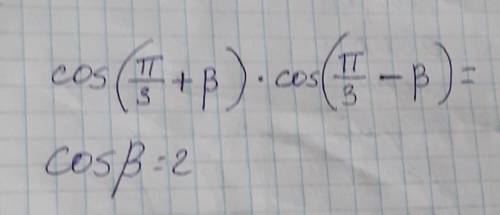 cos(π/3 + β) · cos(π/3 − β) =
cosβ = 2